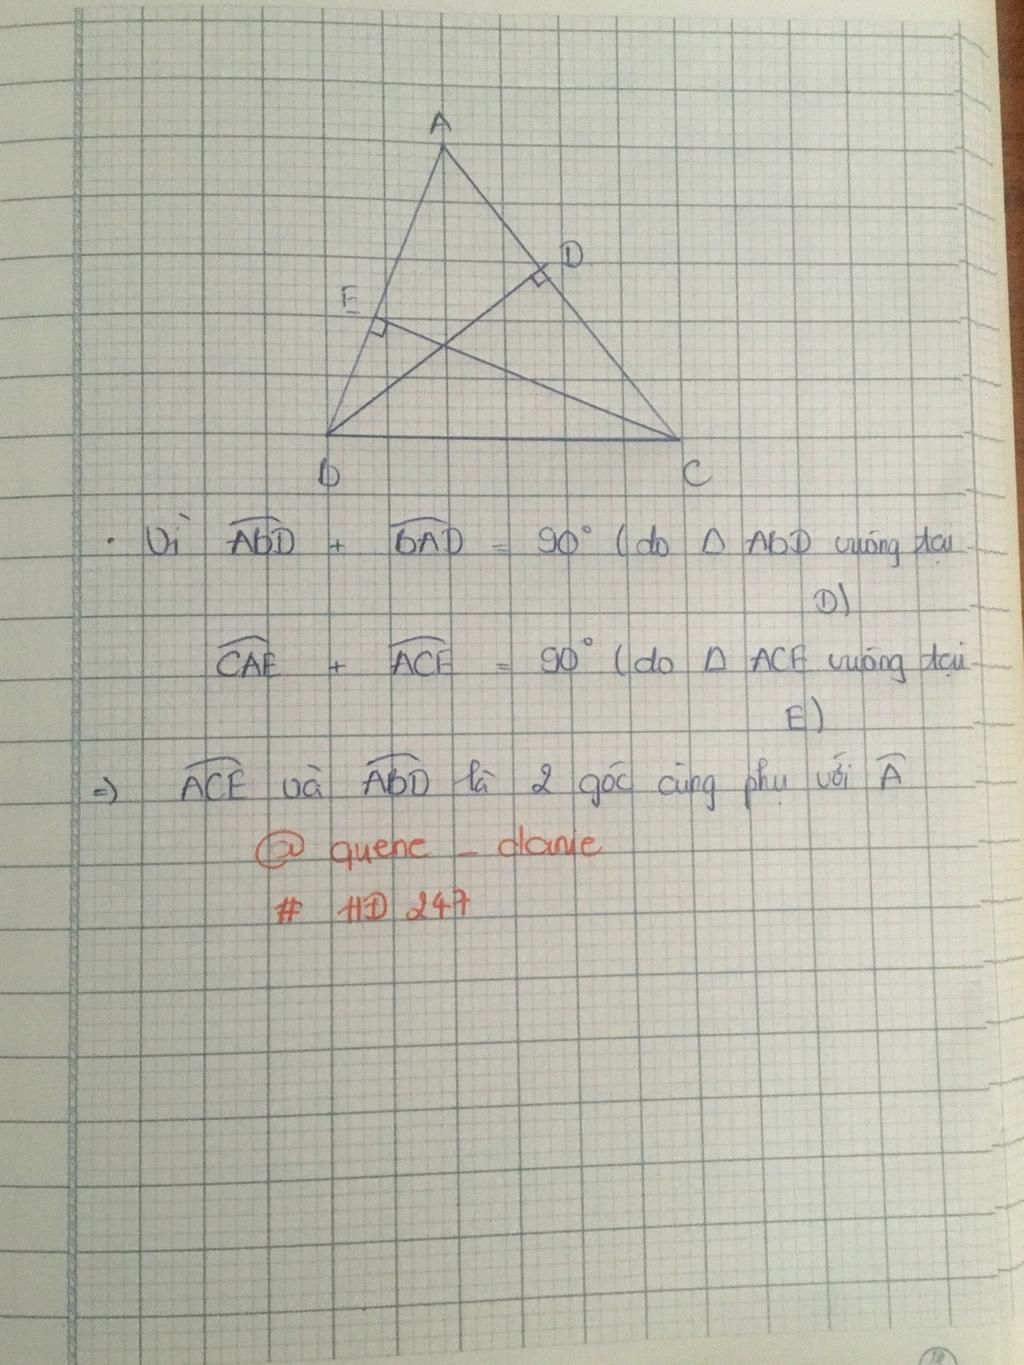 A
D
E
B
C
. Vì ABD + BAD = 90° (do Δ ABD vuông tại
D)
CAE + ACE = 90° (do Δ ACE vuông tại
E)
=> ACE và ABD là 2 góc cùng phụ với A
@ quene _ danie
# HD 247